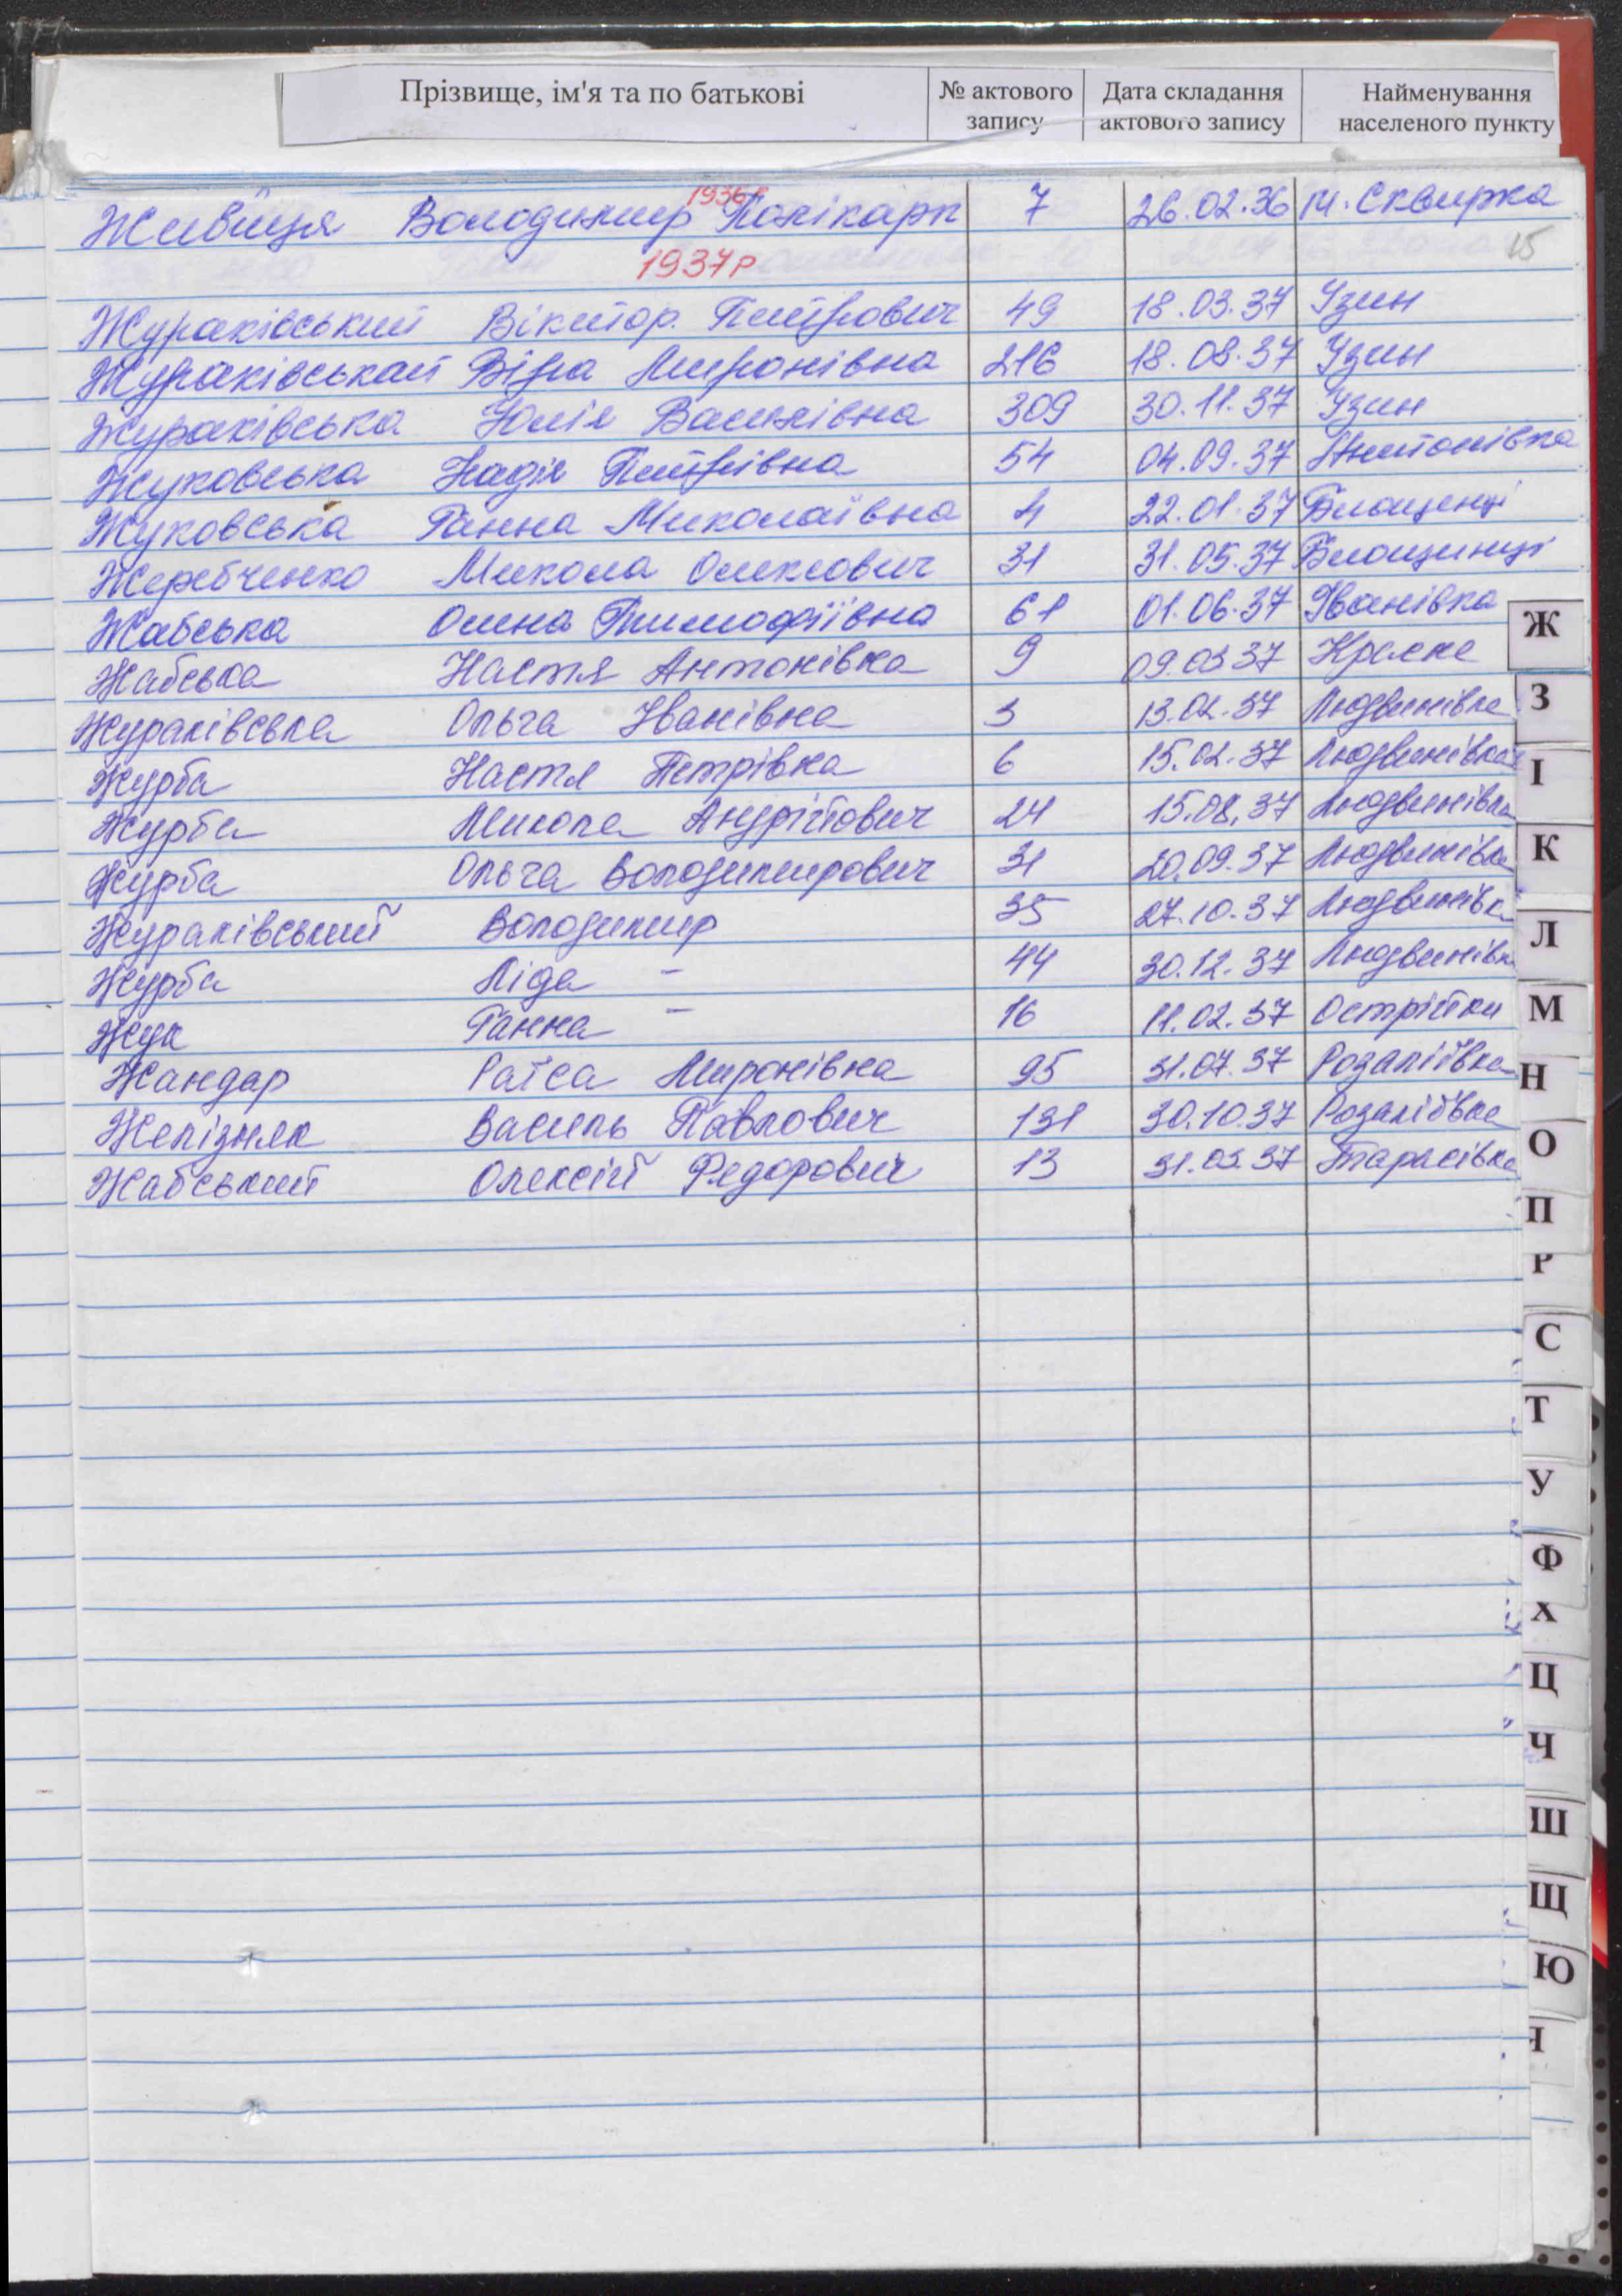 Прізвище, ім'я та по батькові № актового запису Дата складання актового запису Найменування населеного пункту
1936р
Живиця Володимир Полікарп 7 26.02.36 м. Сквирка
15
1937р
Жураківський Віктор Петрович 49 18.03.37 Узин
Жураківськай Віра Миронівна 216 18.08.37 Узин
Жураківська Юлія Василівна 309 30.11.37 Узин
Жуковська Надія Петрівна 54 04.09.37 Антонівка
Жуковська Ганна Миколаївна 4 22.01.37 Блощенці
Жеребченко Микола Олексович 31 31.05.37 Блощинці
Жабська Олена Тимофіївна 61 01.06.37 Іванівка
Жабська Настя Антонівна 9 09.03 37 Красне
Жураківська Ольга Іванівна 3 13.02.37 Людвинівка
Журба Настя Петрівна 6 15.02.37 Людвинівка
Журба Микола Андрійович 24 15.08.37 Людвинівка
Журба Ольга Володимирович 31 20.09.37 Людвинівка
Жураківський Володимир 35 27.10.37 Людвинівка
Журба Ліда – 44 30.12.37 Людвинівка
Жук Ганна – 16 11.02.37 Острійки
Жандар Раїса Миронівна 95 31.07.37 Розаліївка
Желізняк Василь Павлович 131 30.10.37 Розаліївка
Жабський Олексій Федорович 13 31.03.37 Тарасівка
Ж
З
І
К
Л
М
Н
О
П
Р
С
Т
У
Ф
Х
Ц
Ч
Ш
Щ
Ю
Я